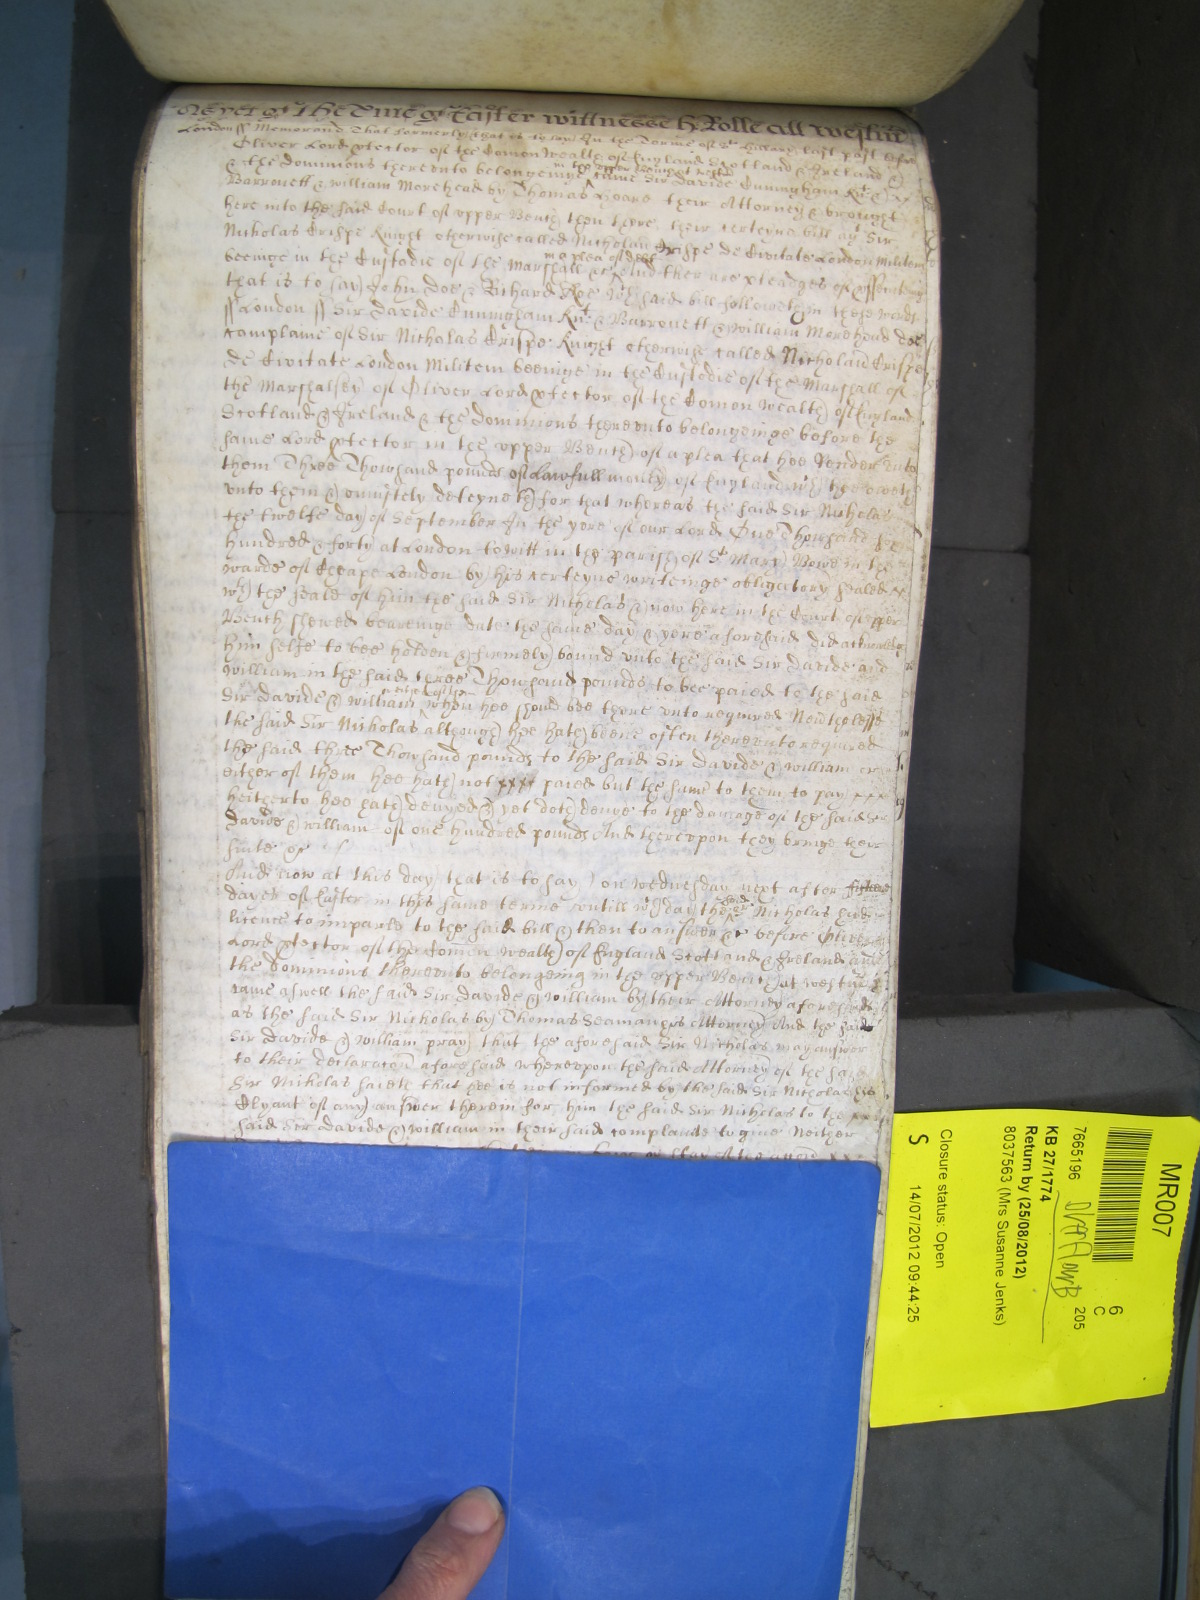 Easter wittnesse H Rolle
London ss Memorand That formerly that is to say In the Terme of St Hillary last past before
Oliver Lord ꝓtector of the Comon Wealth of England Scotland & Ireland
& the dominions thereunto belongeinge in the upper bench att came Sir Davide Cuningham Knt &
Barronett & William Morehead by Thomas Hoare their Attorney & brought
here into the said Court of upper Bench then there their certeyne bill agt Sir
Nicholas Crispe Knight otherwise called Nicholau Crispe de Civitate London Militem
beeinge in the Custodie of the Marshall &c in a plea of debt And ther are pleadges of ꝓsecuting
that is to say John Doe & Richard Roe wch said bill followeth in these words
ss London ss Sir Davide Cuningham Knt & Barronett & William Morehead doe
complaine of Sir Nicholas Crispe Knight otherwise called Nicholau Crispe
de Civitate London Militem beeinge in the Custodie of the Marshall of
the Marshalsey of Oliver Lord ꝓtector of the Comon Wealth of England
Scotland & Ireland & the dominions thereunto belongeinge before the
same Lord ꝓtector in the upper Bench of a plea that hee Render unto
them Three Thowsand pounds of Lawfull money of England wch hee oweth
unto them & uniustely deteyneth for that whereas the said Sir Nicholas
the twelfe day of September In the yere of our Lord One Thowsand six
hundred & forty at London to witt in the parish of St Mary Bowe in the
warde of Cheape London by his certeyne writeinge obligatory sealed
wth the seale of him the said Sir Nicholas & now here in the Court of upper
Bench shewed beareinge date the same day & yere aforesaid did acknowledge
him selfe to bee holden & firmely bound unto the said Sir Davide and
William in the said three Thowsand pounds to bee paied to the said
Sir Davide & William or either of them when hee should bee there unto required Neverthelesse
the said Sir Nicholas although hee hath beene often thereunto required
the said three Thowsand pounds to the said Sir Davide & William or
either of them hee hath not paied but the same to them to pay
heitherto hee hath denyed & yet doth denye to the damage of the said Sr
Davide & William of one hundred pounds And thereupon they bringe their
suite &c
And now at this day that is to say on Wednesday next after fifteene
dayes of Easter in this same terme untill wch day the said Sr Nicholas had
licence to imparle to the said bill & then to answer &c before Oliver
Lord ꝓtector of the Comon Wealth of England Scotland & Ireland and
the dominions thereunto belongeing in the upper Bench at Westmr
came aswell the said Sir Davide & William by their Attorney aforesaid
as the said Sir Nicholas by Thomas Seaman his Attorney And the said
Sir Davide & William pray that the aforesaid Sir Nicholas may answer
to their declaracon aforesaid whereupon the said Attorney of the said
Sir Nicholas saieth that hee is not informed by the said Sir Nicholas his
Clyant of any answer therein for him the said Sir Nicholas to the
said Sir Davide & William in their said complainte to give Neither
MR007
6
C
7665196
205
KB 27/1774
Return by (25/08/2012)
8037563 (Mrs Susanne Jenks)
Closure status: Open
S 14/07/2012 09:44:25